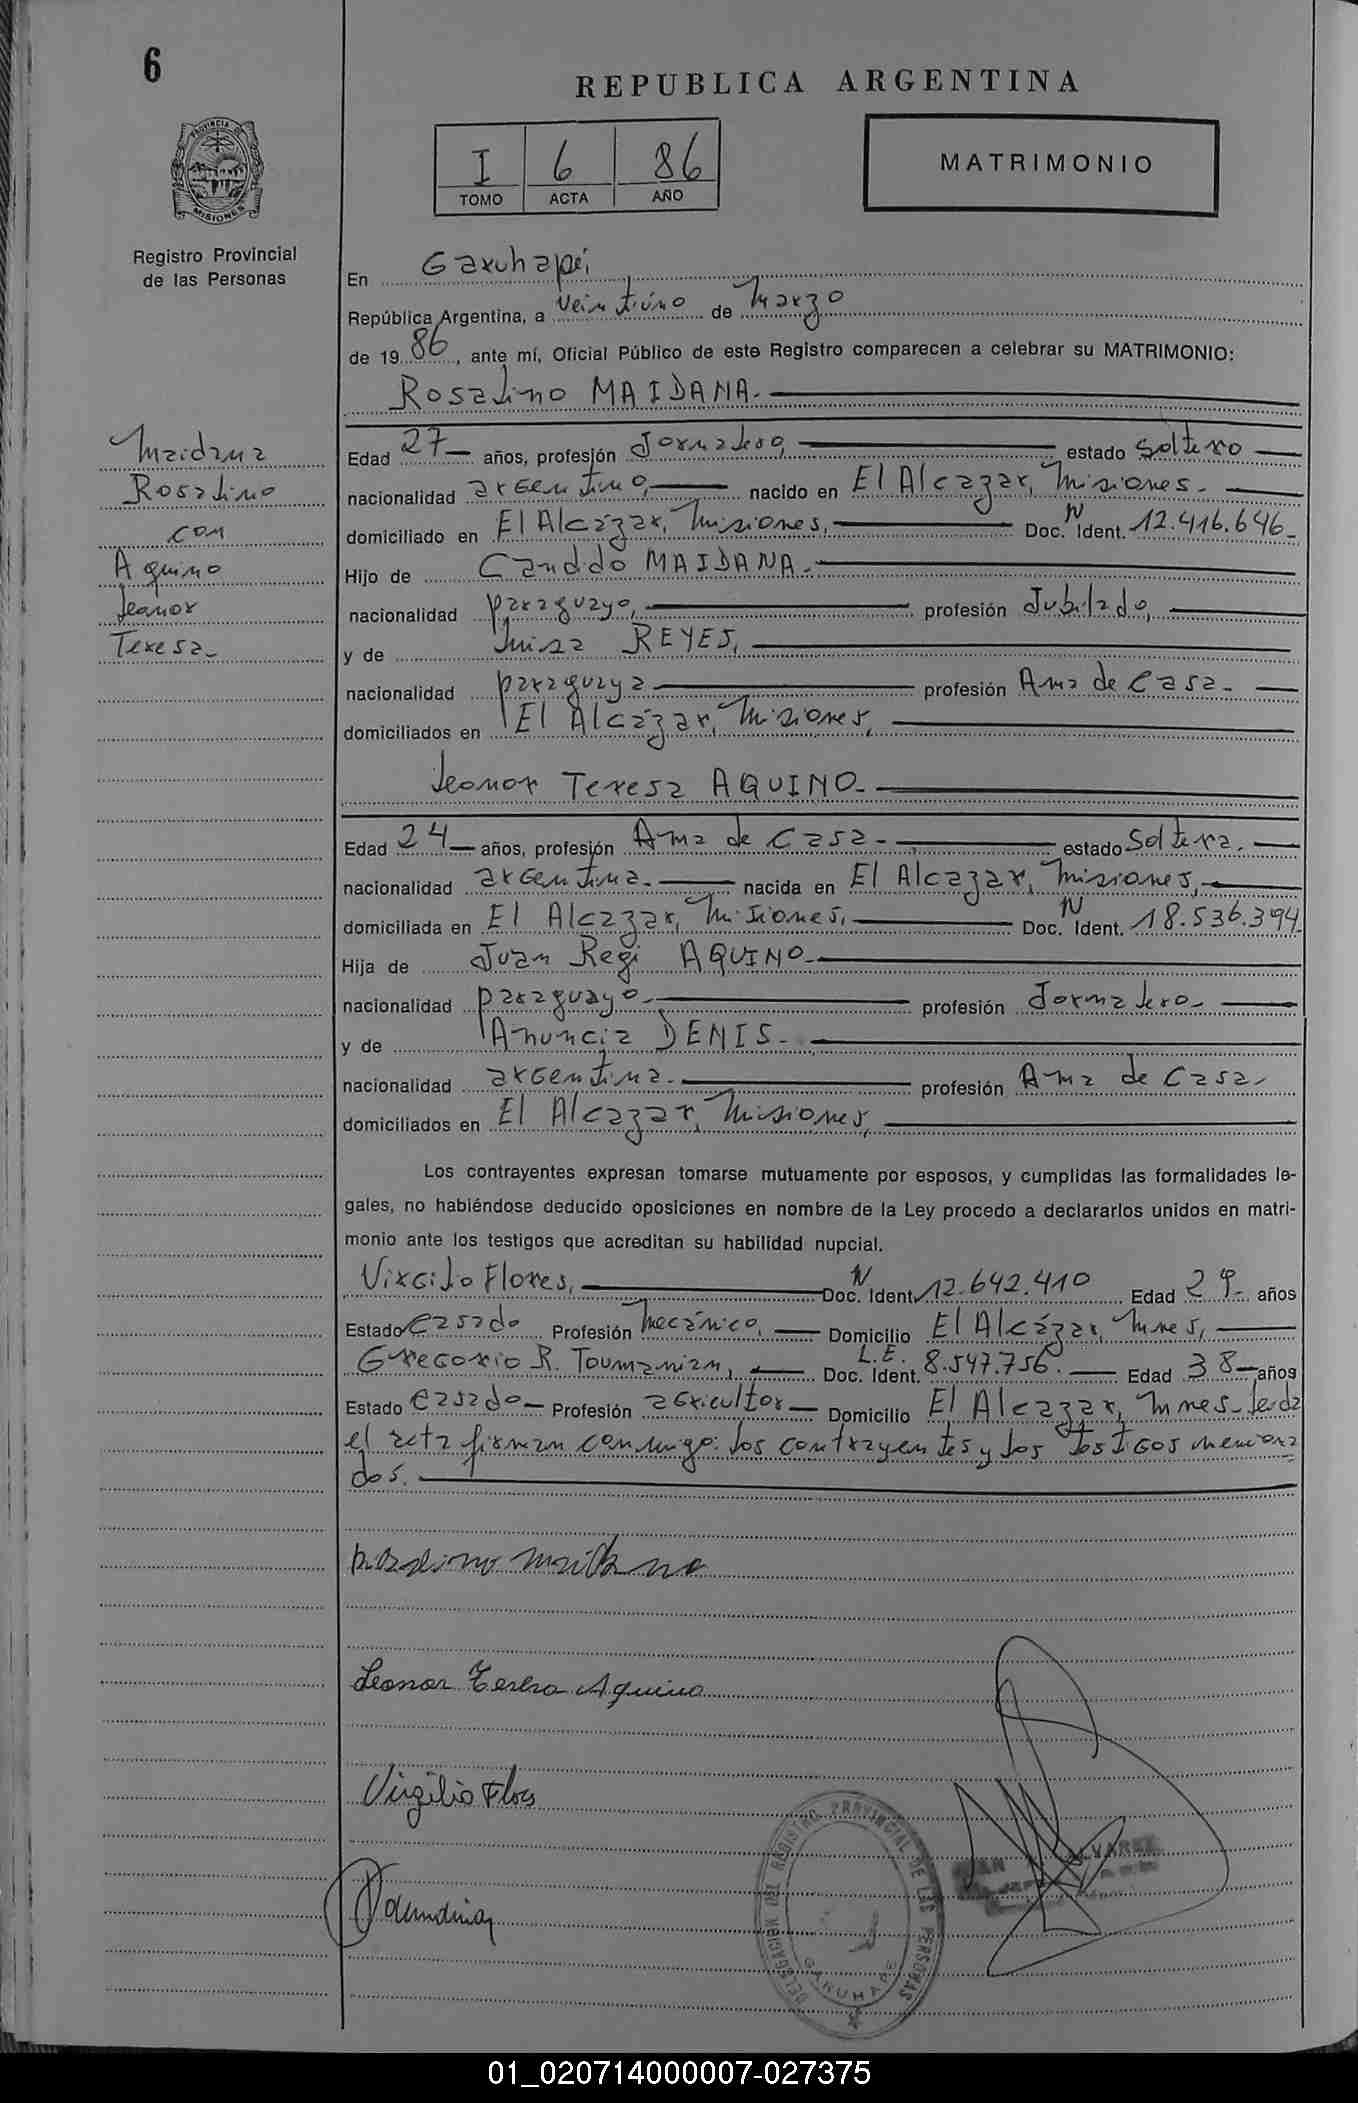 6
REPUBLICA ARGENTINA
I 6 86
TOMO ACTA AÑO
MATRIMONIO
PROVINCIA DE MISIONES
Registro Provincial
de las Personas
En Garuhapé,
República Argentina, a veintiúno de Marzo
de 1986, ante mí, Oficial Público de este Registro comparecen a celebrar su MATRIMONIO:
Rosalino MAIDANA.
Maidana
Rosalino
con
Aquino
Leonor
Teresa
Edad 27 años, profesión Jornalero, estado soltero
nacionalidad argentino, nacido en El Alcazar, Misiones.
domiciliado en El Alcázar, Misiones, Doc. N Ident. 12.416.646
Hijo de Candido MAIDANA.
nacionalidad paraguayo, profesión Jubilado,
y de Luisa REYES,
nacionalidad paraguaya profesión Ama de Casa.
domiciliados en El Alcázar, Misiones,
Leonor Teresa AQUINO.
Edad 24 años, profesión Ama de Casa. estado Soltera.
nacionalidad argentina. nacida en El Alcazar, Misiones,
domiciliada en El Alcazar, Misiones, Doc. N Ident. 18.536.394
Hija de Juan Regi AQUINO
nacionalidad paraguayo. profesión Jornalero.
y de Anuncia DENIS.
nacionalidad argentina. profesión Ama de Casa.
domiciliados en El Alcazar, Misiones,
Los contrayentes expresan tomarse mutuamente por esposos, y cumplidas las formalidades le-
gales, no habiéndose deducido oposiciones en nombre de la Ley procedo a declararlos unidos en matri-
monio ante los testigos que acreditan su habilidad nupcial.
Virgilio Flores, Doc. N Ident. 12.642.410 Edad 29 años
Estado Casado Profesión Mecánico, Domicilio El Alcázar, Mnes,
Gregorio R. Toumanian, Doc. L.E. Ident. 8.547.756. Edad 38 años
Estado Casado Profesión agricultor Domicilio El Alcazar, Mnes. Leida
el acta firman conmigo: los contrayentes y los testigos menciona
dos.
Rosalino Maidana
Leonor Teresa Aquino
Virgilio Flores
DELEGACION DEL REGISTRO PROVINCIAL DE LAS PERSONAS
GARUHAPE
01_020714000007-027375